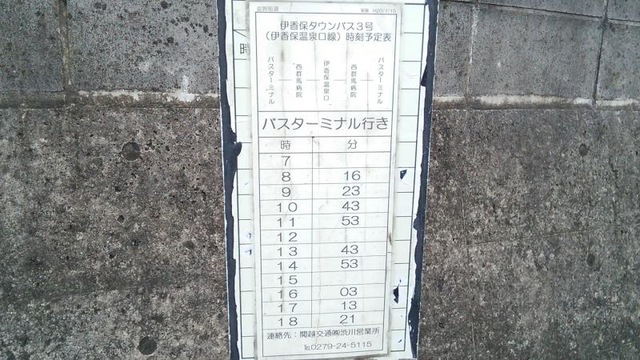 伊香保タウンバス3号
(伊香保温泉口線)時刻予定表
バスターミナル
西群馬病院
伊香保温泉口
西群馬病院
バスターミナル
バスターミナル行き
時 分
7
8 16
9 23
10 43
11 53
12
13 43
14 53
15
16 03
17 13
18 21
連絡先:関越交通㈱渋川営業所
℡0279-24-5115
時